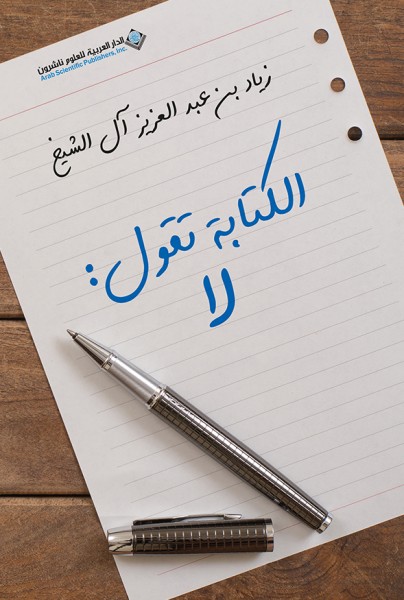 الدار العربية للعلوم ناشرون
Arab Scientific Publishers, Inc.
زياد بن عبد العزيز آل الشيخ
الكتابة تقول:
لا